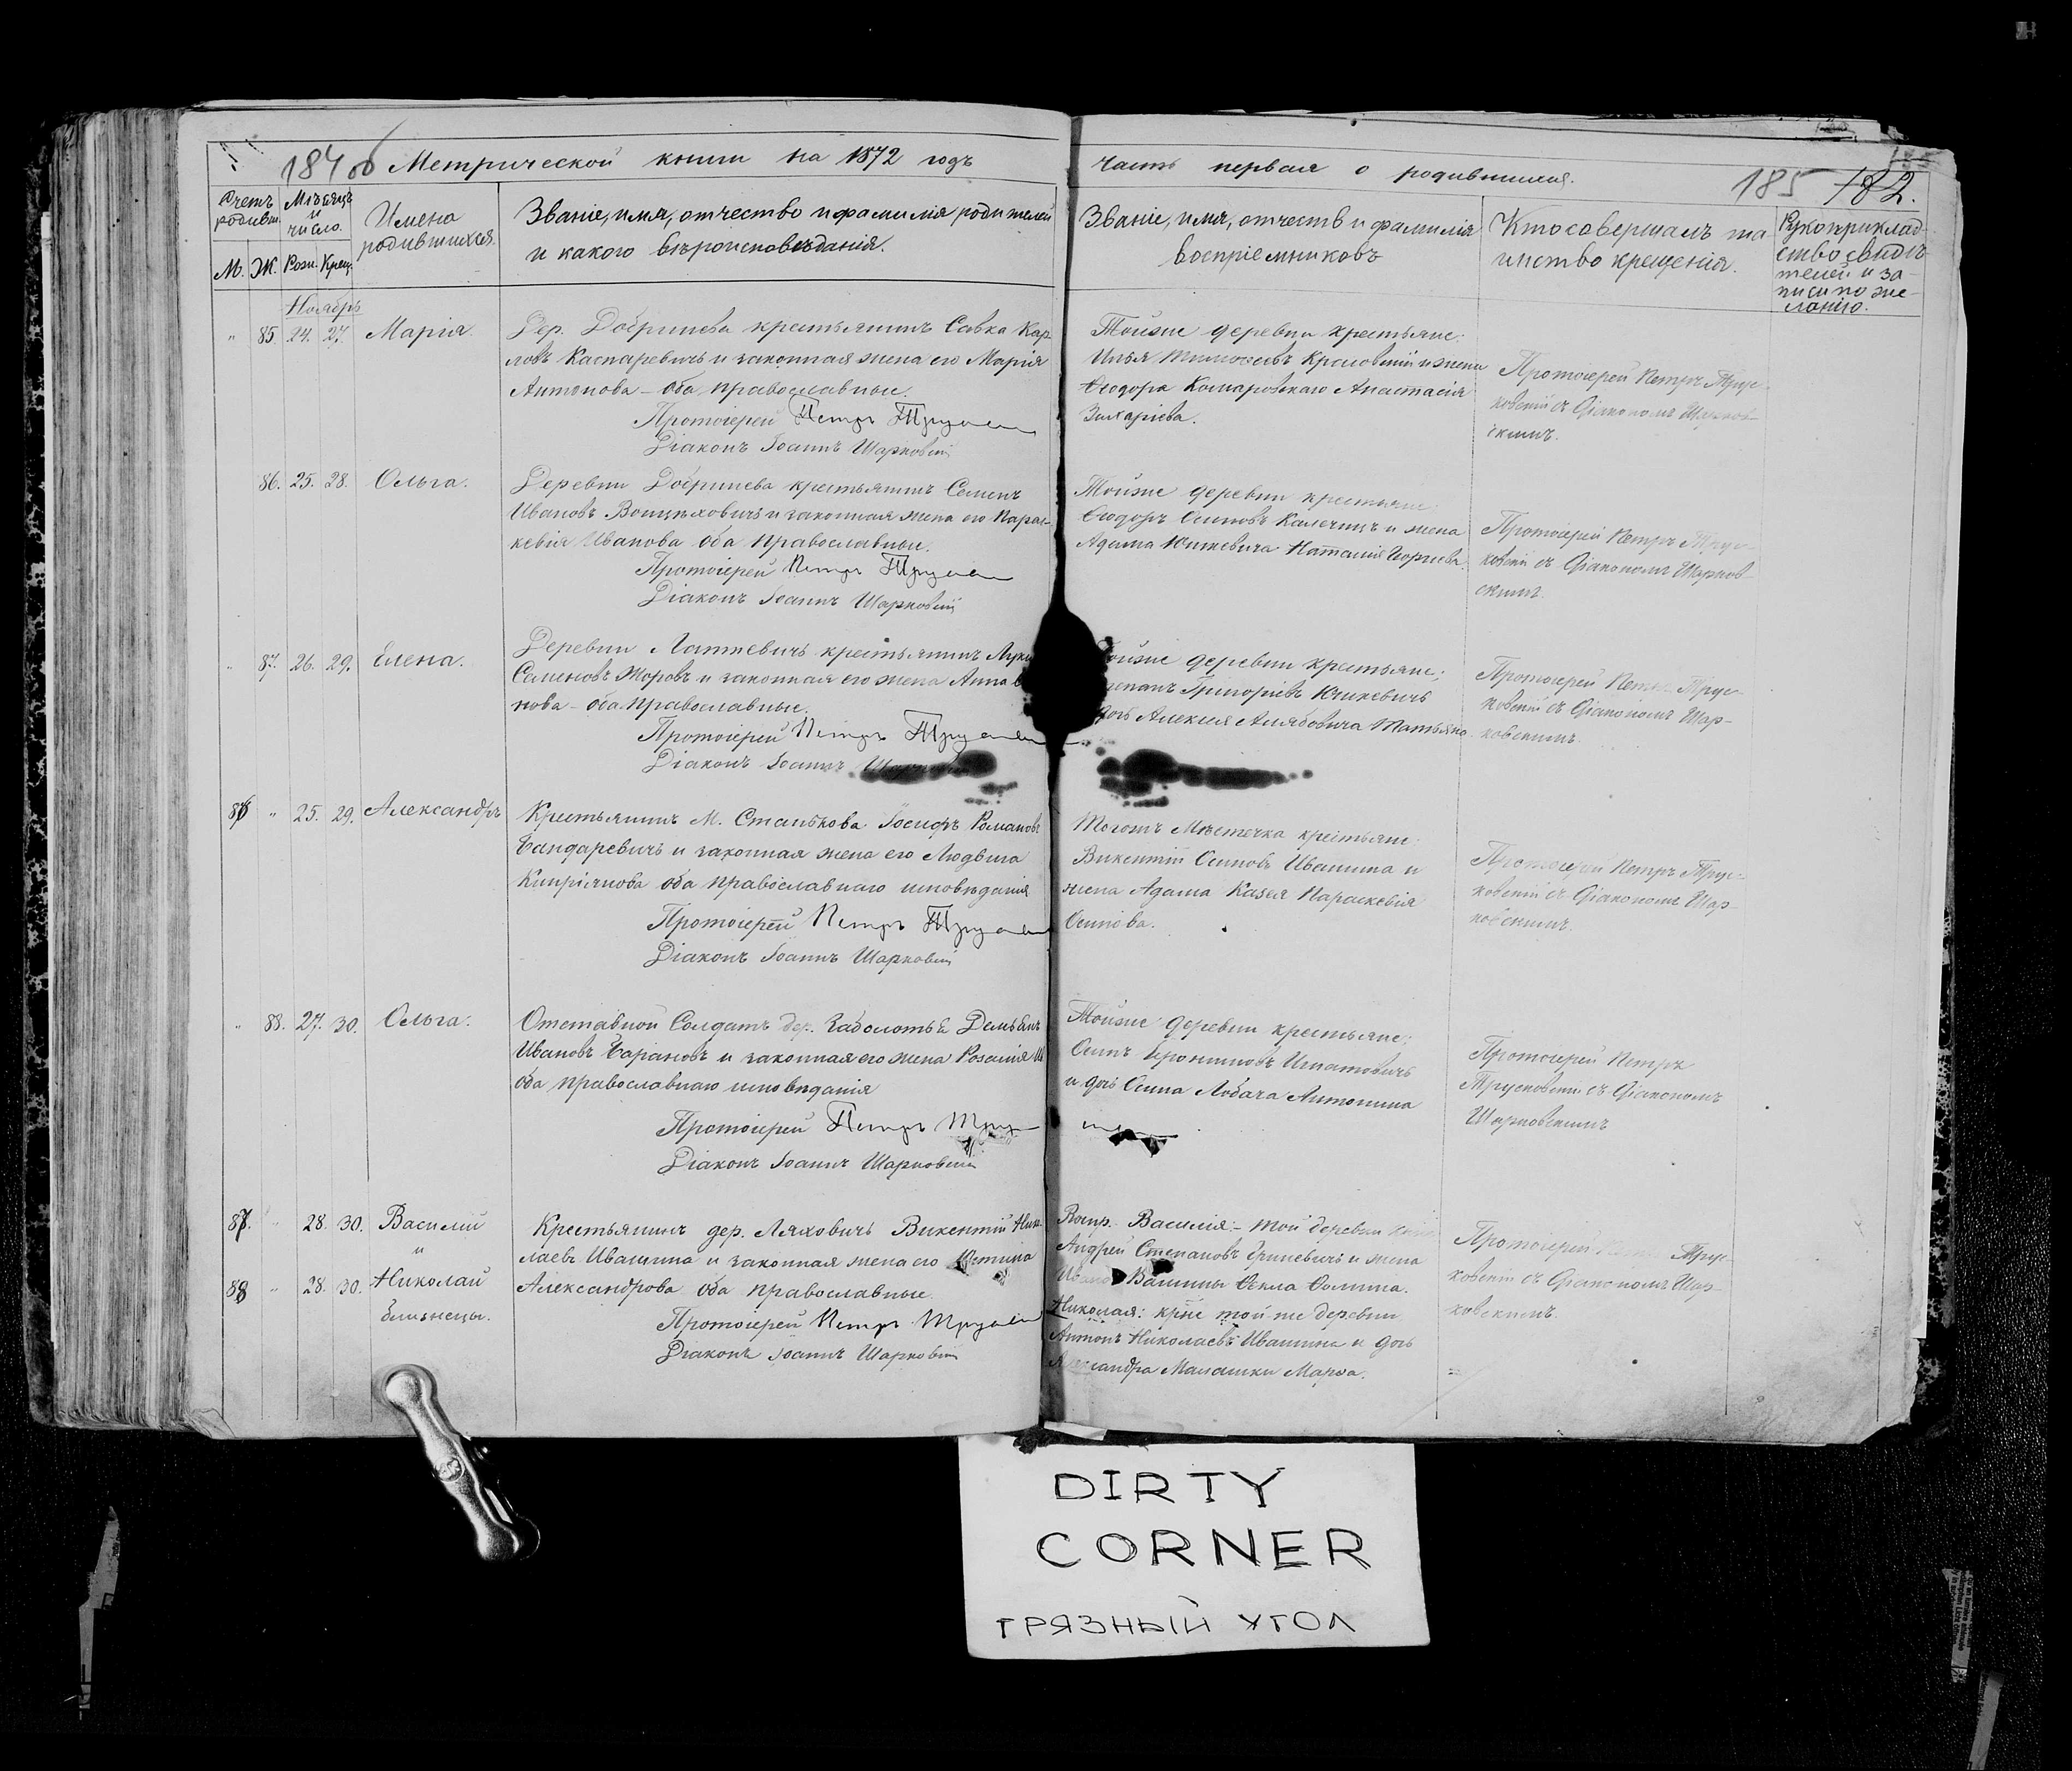 184 об Метрической книги на 1872 годъ
часть первая о родившихся.
185 182.
Счетъ родивш.
М. Ж.
Мѣсяцъ и число.
Рожд. Крещ.
Имена родившихся.
Званіе, имя, отчество и фамилія родителей
и какого вѣроисповѣданія.
Званіе, имя, отчеств и фамилія
воспріемниковъ
Кто совершалъ та
инство крещенія.
Рукоприклад
ство свидѣ
телей и за-
писи по же-
ланію.
Ноябрь
" 85. 24. 27. Марія.
Дер. Добринева крестьянинъ Савка Кар
ловъ Каспаревичъ и законная жена его Марія
Антонова - оба православные.
Протоіерей Петръ
Діаконъ Іоаннъ Шарковскій
Тойже деревни крестьяне:
Илья Тимофеевъ и жена
Ѳеодора Комаровскаго Анастасія
Захаріева.
Протоіерей Петръ Трус-
ковскій съ Діакономъ Шарков-
скимъ.
86. 25. 28. Ольга.
Деревни Добринева крестьянинъ Семенъ
Ивановъ и законная жена его Парас-
кевія Иванова оба православные.
Протоіерей Петръ
Діаконъ Іоаннъ Шарковскій
Тойже деревни крестьяне
Ѳеодоръ Осиповъ и жена
Адама Юшкевича Наталія
Протоіерей Петръ Трус-
ковскій съ Діакономъ Шарков-
скимъ.
" 87. 26. 29. Елена.
Деревни крестьянинъ
Семеновъ Жоровъ и законная его жена Анна
нова - оба православные.
Протоіерей Петръ
Діаконъ Іоаннъ
деревни крестьяне;
Григоріевъ Юшкевичъ
дочь Алексея Татьяна
Протоіерей Петръ Трус-
ковскій съ Діакономъ Шар-
ковскимъ.
86 " 25. 29. Александръ
Крестьянинъ М. Станькова Іосифъ Романовъ
Бандаревичъ и законная жена его Людвига
Кипріянова оба православнаго исповѣданія
Протоіерей Петръ
Діаконъ Іоаннъ Шарковскій
Тогожъ Мѣстечка крестьяне:
Викентій Осиповъ Ивашина и
жена Адама Казея Параскевія
Осипова.
Протоіерей Петръ Трус-
ковскій съ Діакономъ Шар-
ковскимъ.
" 88. 27. 30. Ольга.
Отставной Солдатъ дер. Заболотья Демьянъ
Ивановъ Барановъ и законная его жена Розалія
оба православнаго исповѣданія
Протоіерей Петръ
Діаконъ Іоаннъ Шарковскій
Тойже деревни крестьяне:
Осипъ Игнатовичъ
и дочь Осипа Лобача Антонина
Протоіерей Петръ
Трусковскій съ Діакономъ
Шарковскимъ
87. " 28. 30. Василій
и
88 " 28. 30. Николай
близнецы.
Крестьянинъ дер. Ляховичъ Викентій Нико
лаевъ Ивашина и законная жена его Юстина
Александрова оба православные.
Протоіерей Петръ
Діаконъ Іоаннъ Шарковскій
Воспр. Василія: - той деревни
Андрей Степановъ Гриневичъ и жена
Ивашины Ѳекла Ѳомина.
Николая: крне той же деревни
Антонъ Николаевъ Ивашина и дочь
Александра Малашки Марѳа.
Протоіерей Трус-
ковскій съ Діакономъ Шар-
ковскимъ.
DIRTY
CORNER
ГРЯЗНЫЙ УГОЛ